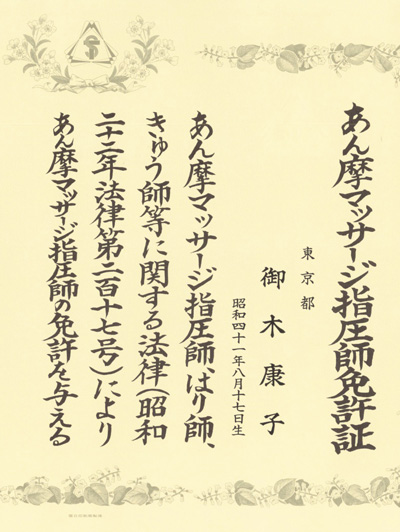 あん摩マッサージ指圧師免許証
東京都
御木康子
昭和四十一年八月十七日生
あん摩マッサージ指圧師、はり師、
きゅう師等に関する法律(昭和
二十二年法律第二百十七号)により
あん摩マッサージ指圧師の免許を与える